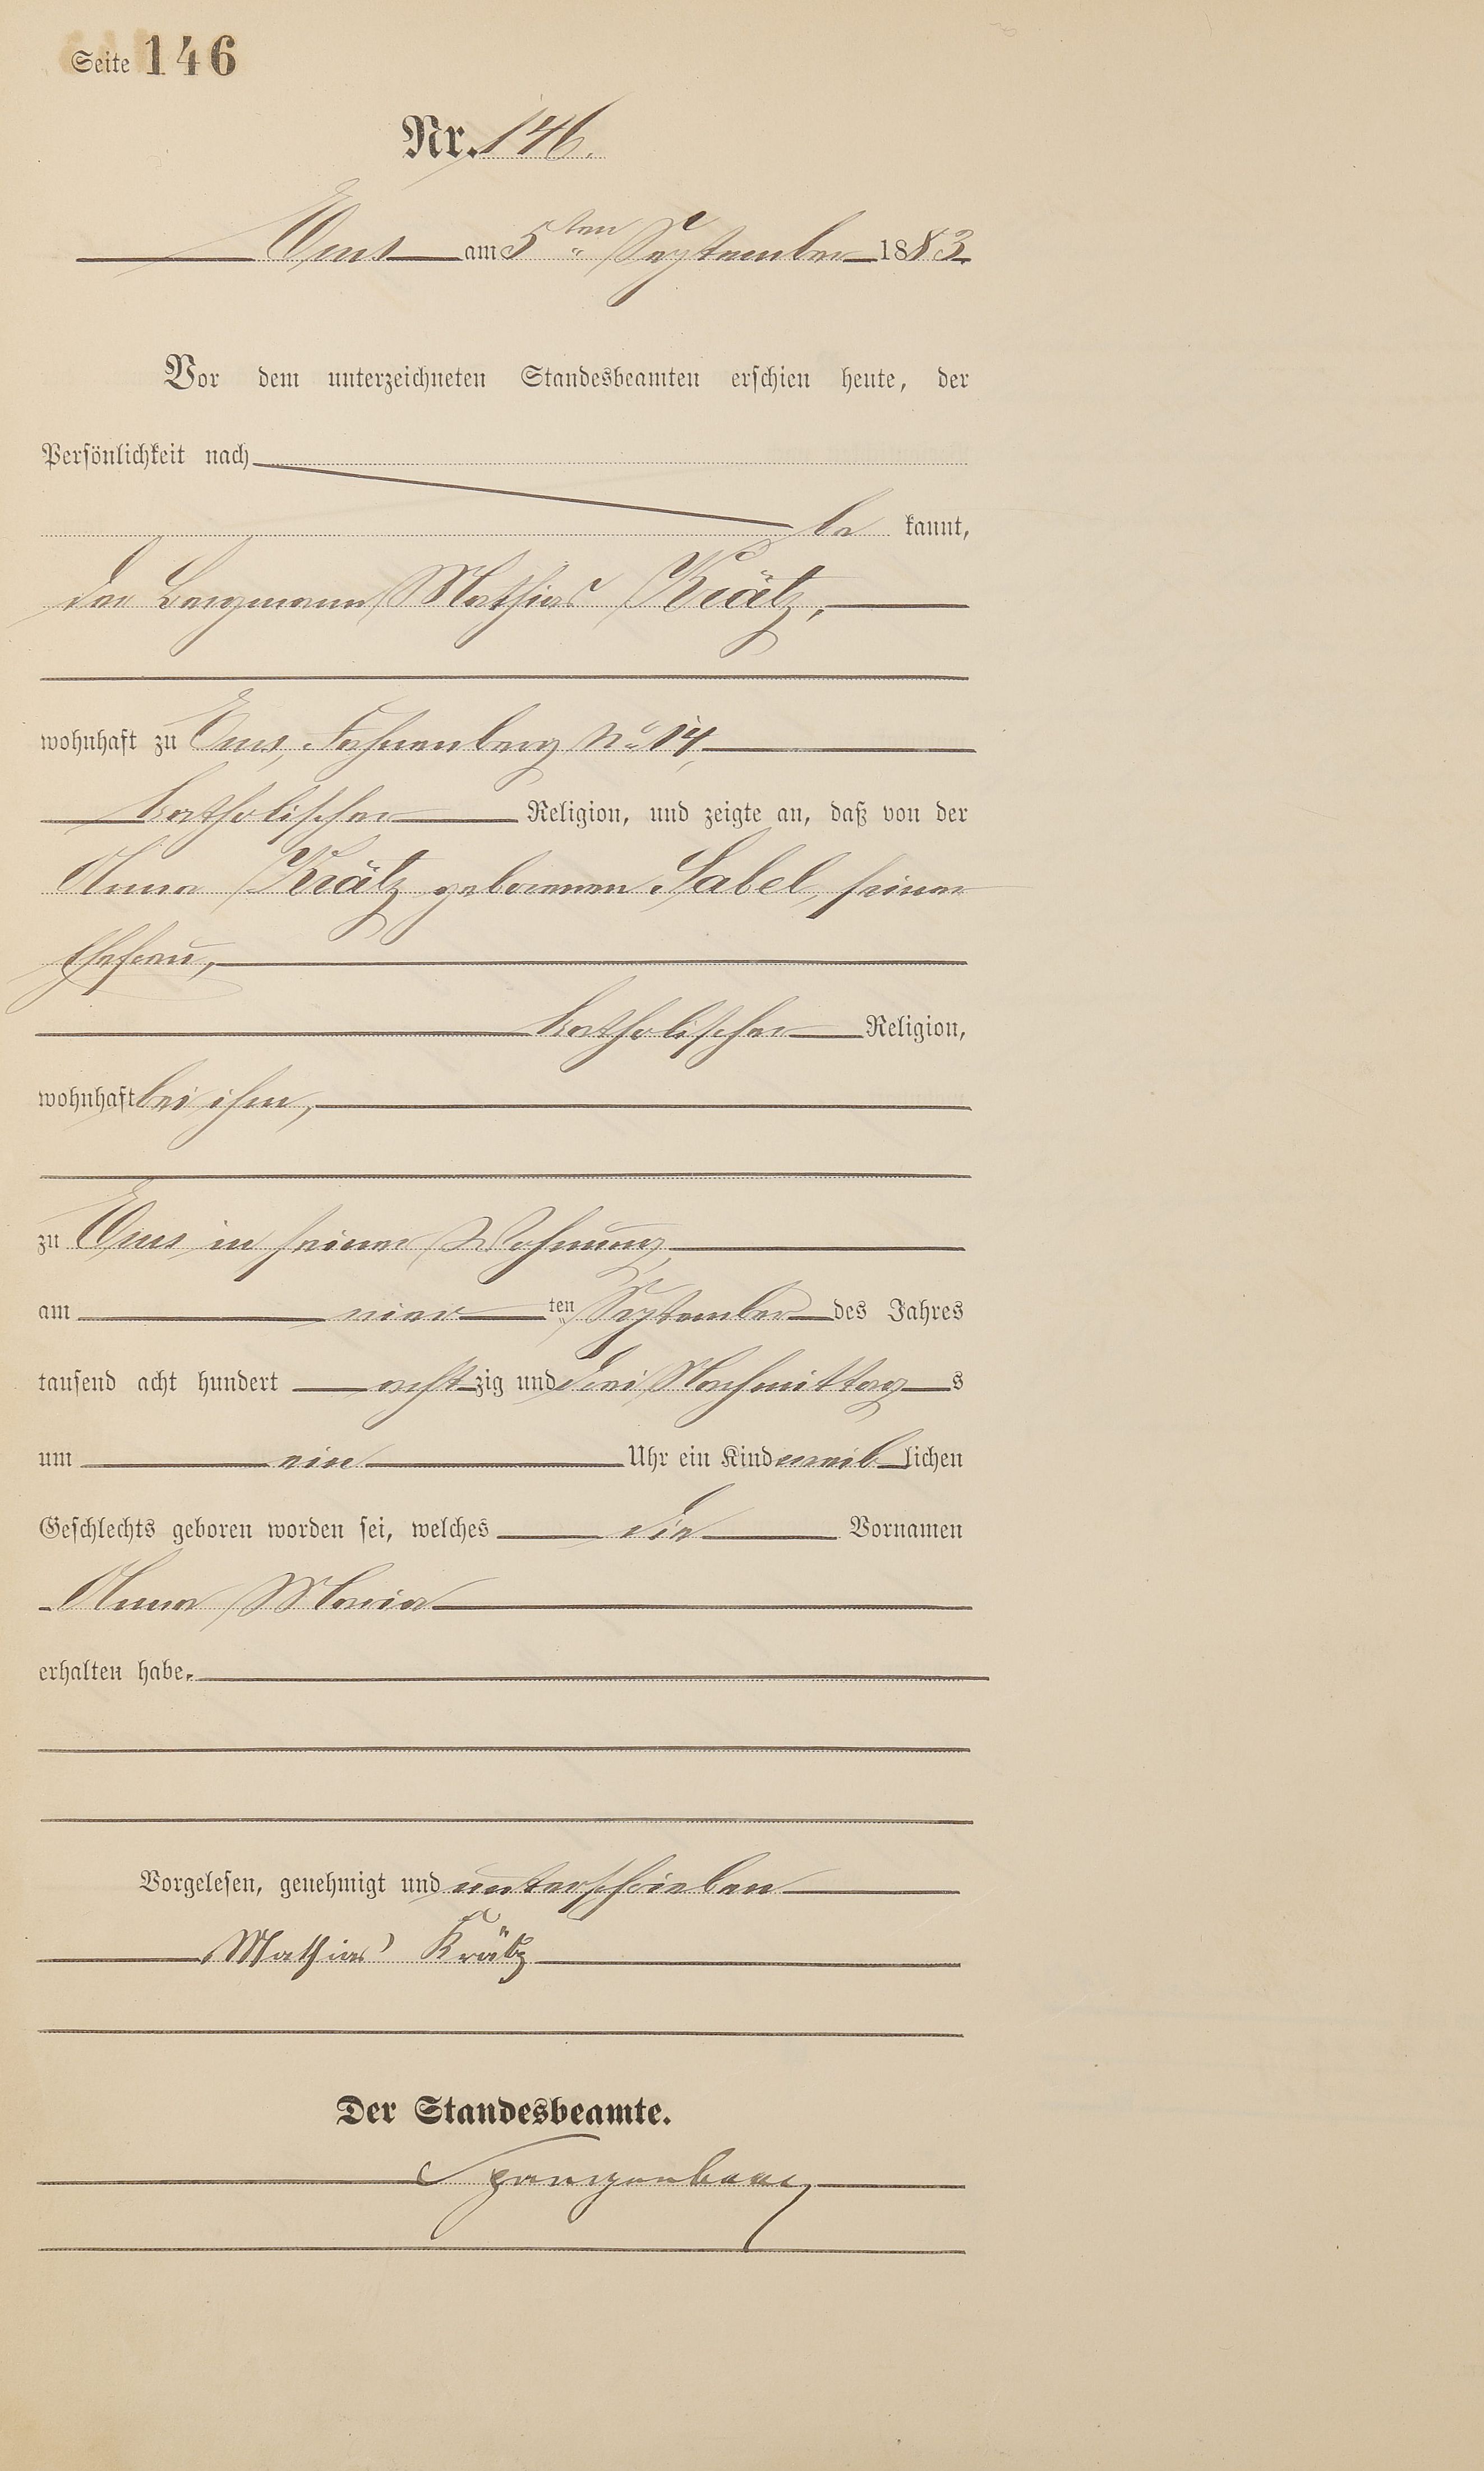 Seite 146
Nr. 146.
Ems am 5ten September 1883.
Vor dem unterzeichneten Standesbeamten erschien heute, der
Persönlichkeit nach
be kannt,
der Bergmann Mathias Krätz,
wohnhaft zu Ems, Fahnenberg No 14,
katholischer Religion, und zeigte an, daß von der
Anna Krätz geborenen Sabel, seiner
Ehefrau,
katholischer Religion,
wohnhaft bei ihm,
zu Ems in seiner Wohnung,
am vier ten September des Jahres
tausend acht hundert acht zig und drei Nachmittag s
um ein Uhr ein Kind weib lichen
Geschlechts geboren worden sei, welches die Vornamen
Anna Maria
erhalten habe.
Vorgelesen, genehmigt und unterschrieben
Mathias Krätz
Der Standesbeamte.
Spangenberg